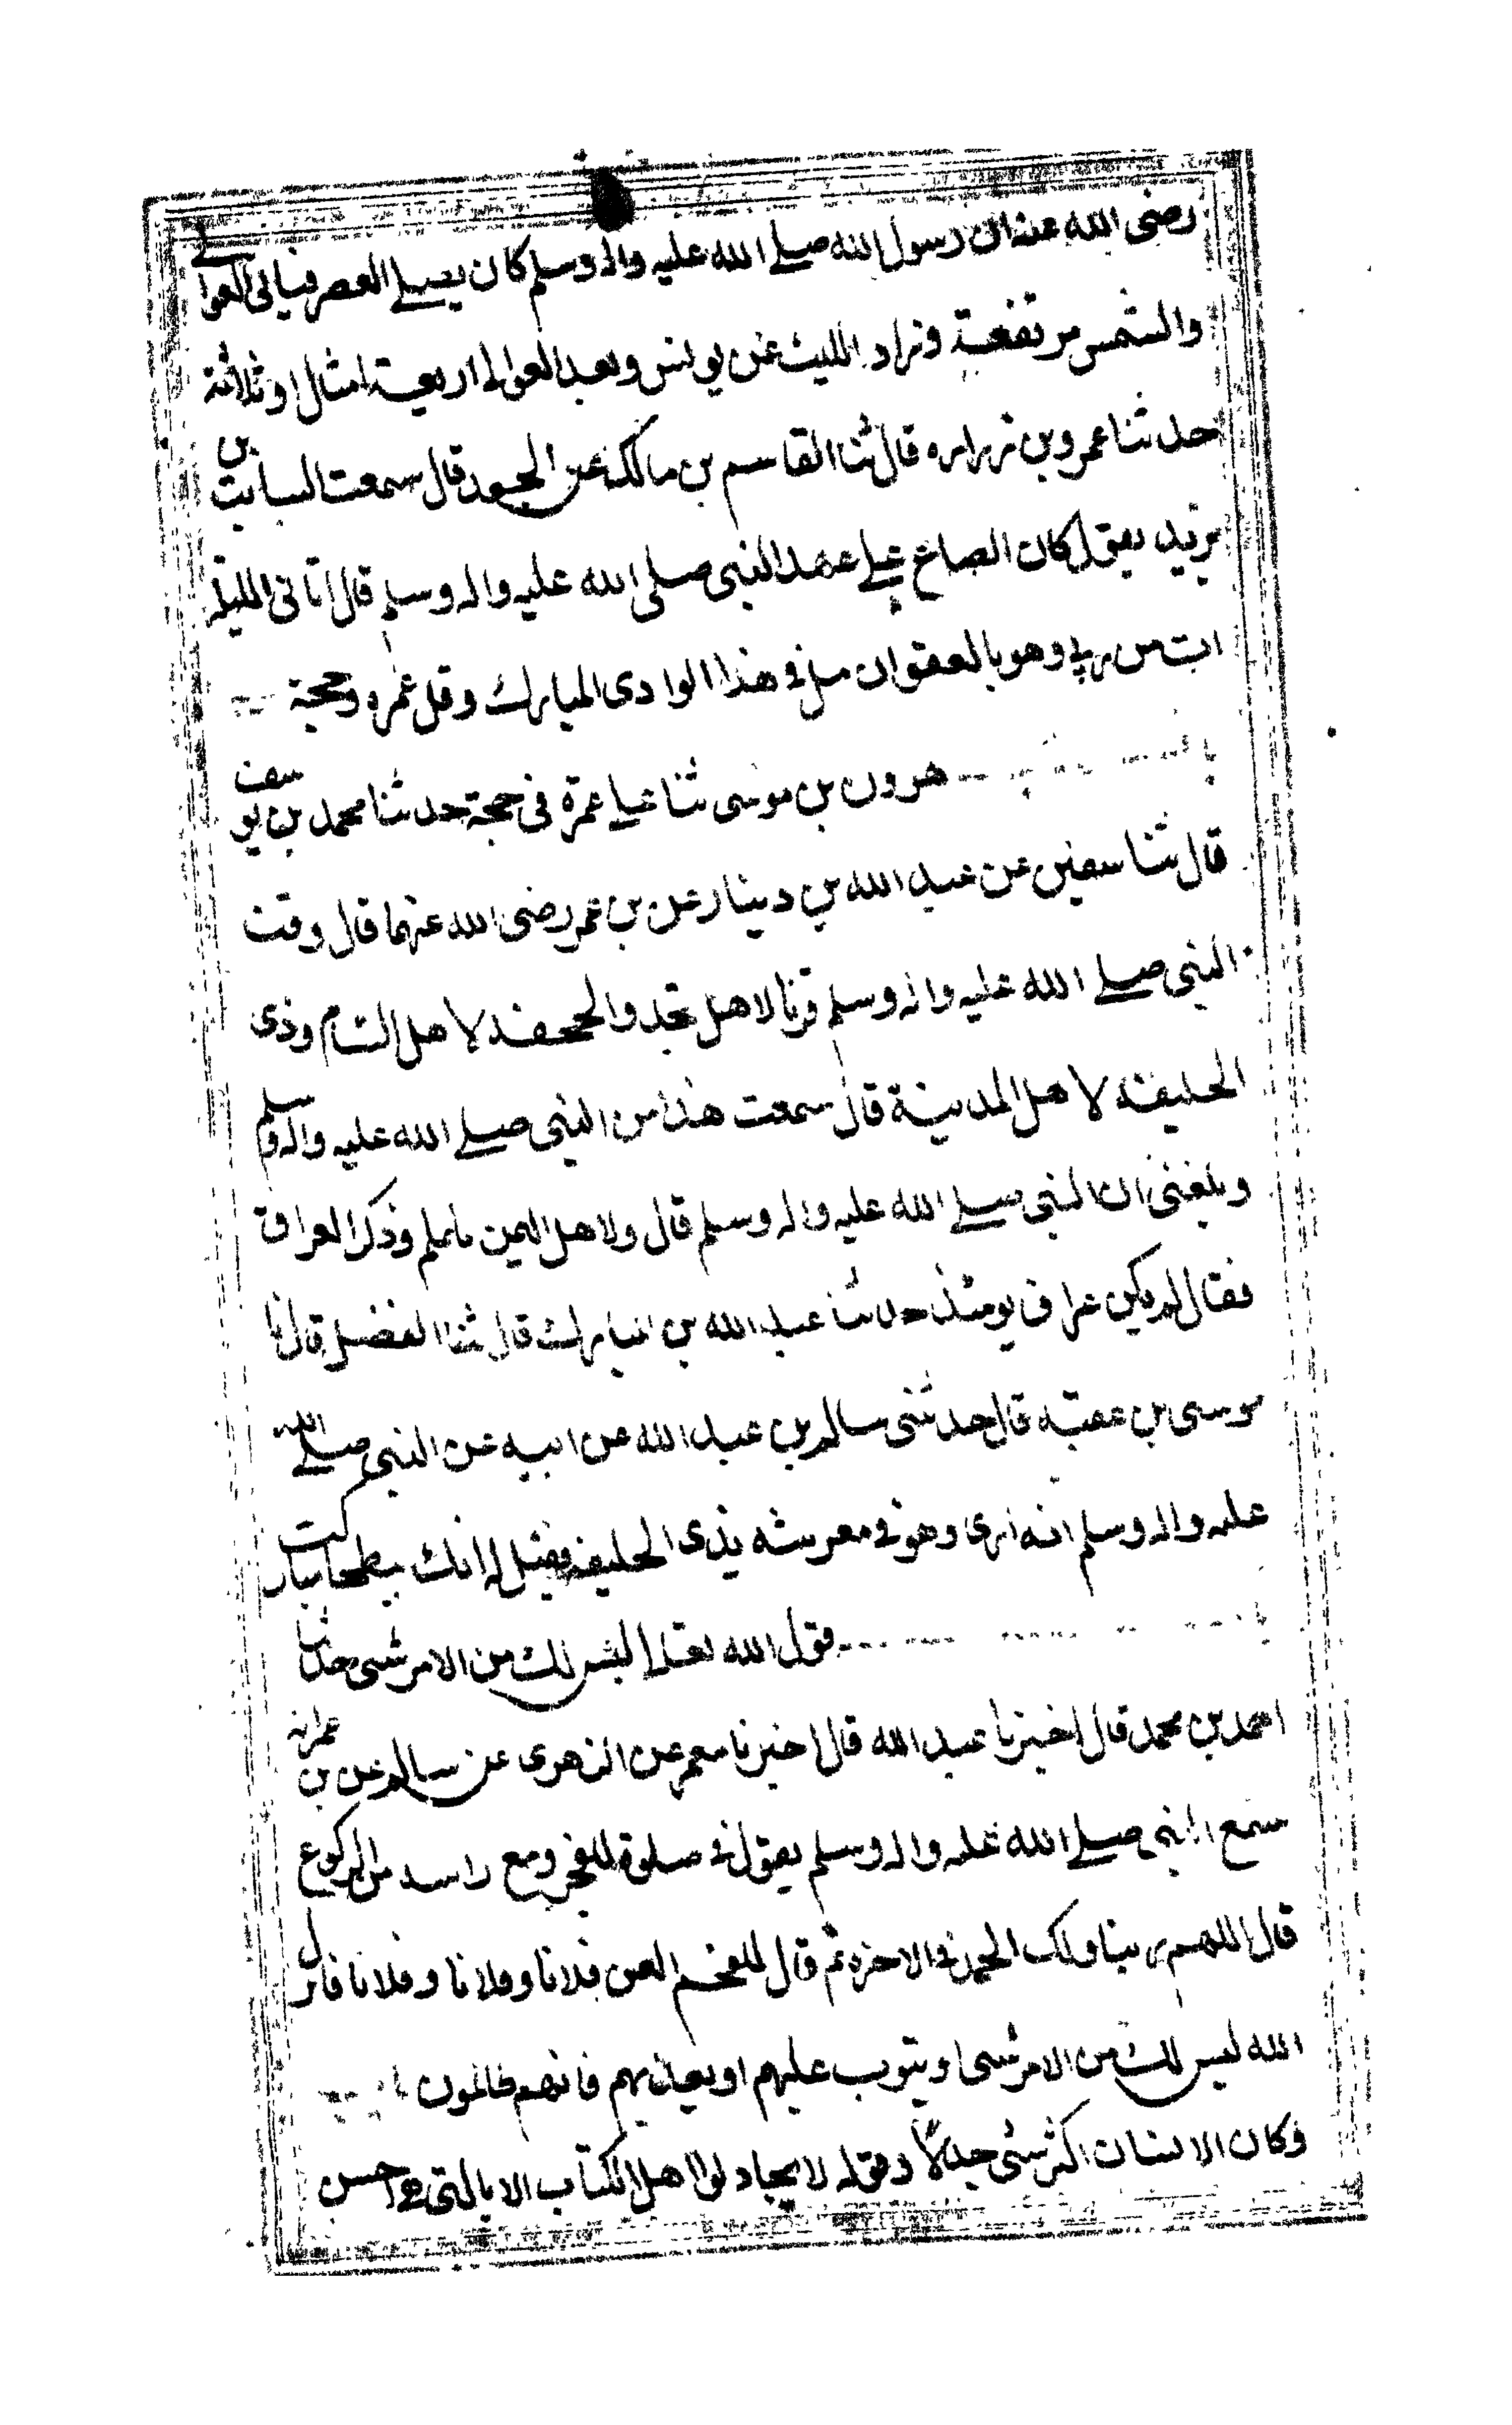 رضى الله عنه ان رسول الله صلى الله عليه واله وسلم كان يصلى العصر فياتى العوالى
والشمس مرتفعة وزاد الليث عن يونس وبعد العوالى اربعة امثال او ثلاثة
حدثنا عمرو بن زراره قال ثنا القاسم بن مالك عن الجعود قال سمعت السايب بن
يزيد يقول كان الصاع على عهد النبى صلى الله عليه واله وسلم قال اتانى الليلة
ات من ربي وهو بالعقو ان صل فى هذا الوادى المبارك وقل عمره وحجة
هرون بن موسى ثنا على عمرة فى حجة حدثنا محمد بن يوسف
قال ثنا سفين عن عبد الله بن دينار عن بن عمر رضى الله عنهما قال وقت
النبى صلى الله عليه واله وسلم قرنا لاهل نجد والجحفه لاهل الشام وذى
الحليفه لاهل المدينة قال سمعت هذا من النبى صلى الله عليه واله وسلم
وبلغنى ان النبى صلى الله عليه واله وسلم قال ولاهل اليمن يلملم وذكر العراق
فقال لم يكن عراق يومئذ حدثنا عبد الله بن المبارك قال ثنا الفضل قال نا
موسى بن عقبه قال حدثنى سالم بن عبد الله عن ابيه عن النبى صلى الله
عليه واله وسلم انه ارى وهو فى معرسه بذى الحليفه فقيل له انك ببطحا مباركت
قول الله تعالى ليس لك من الامر شى حدثنا
احمد بن محمد قال اخبرنا عبد الله قال اخبرنا معمر عن الزهرى عن سالم عن بن عمر انه
سمع النبى صلى الله عليه واله وسلم يقول فى صلوة الفجر ومع راسه من الركوع
قال اللهم ربنا ولك الحمد فى الاخره ثم قال اللهم العن فلانا وفلانا وفلانا فانزل
الله ليس لك من الامر شى او يتوب عليهم او يعذبهم فانهم ظالمون
وكان الانسان اكثر شى جدلا وقوله لا يجادلوا اهل الكتاب الا بالتى هى احسن